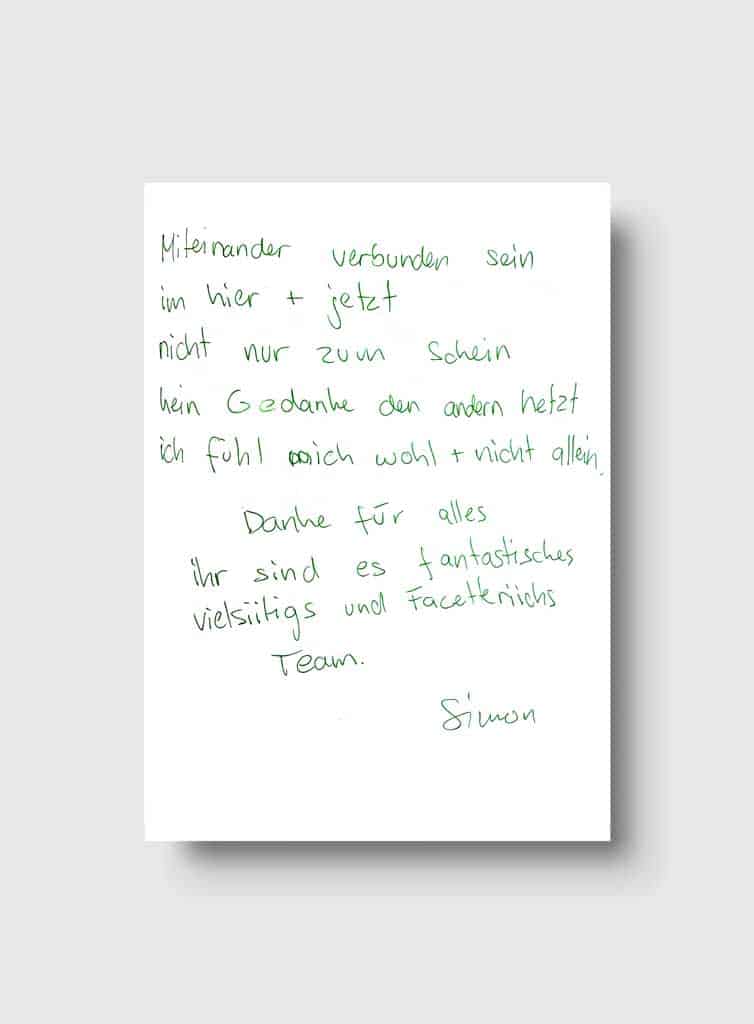 Miteinander verbunden sein
im hier + jetzt
nicht nur zum Schein
kein Gedanke den andern hetzt
ich fühl mich wohl + nicht allein.
Danke für alles
ihr sind es fantastisches
vielsiitigs und Facetteriichs
Team.
Simon